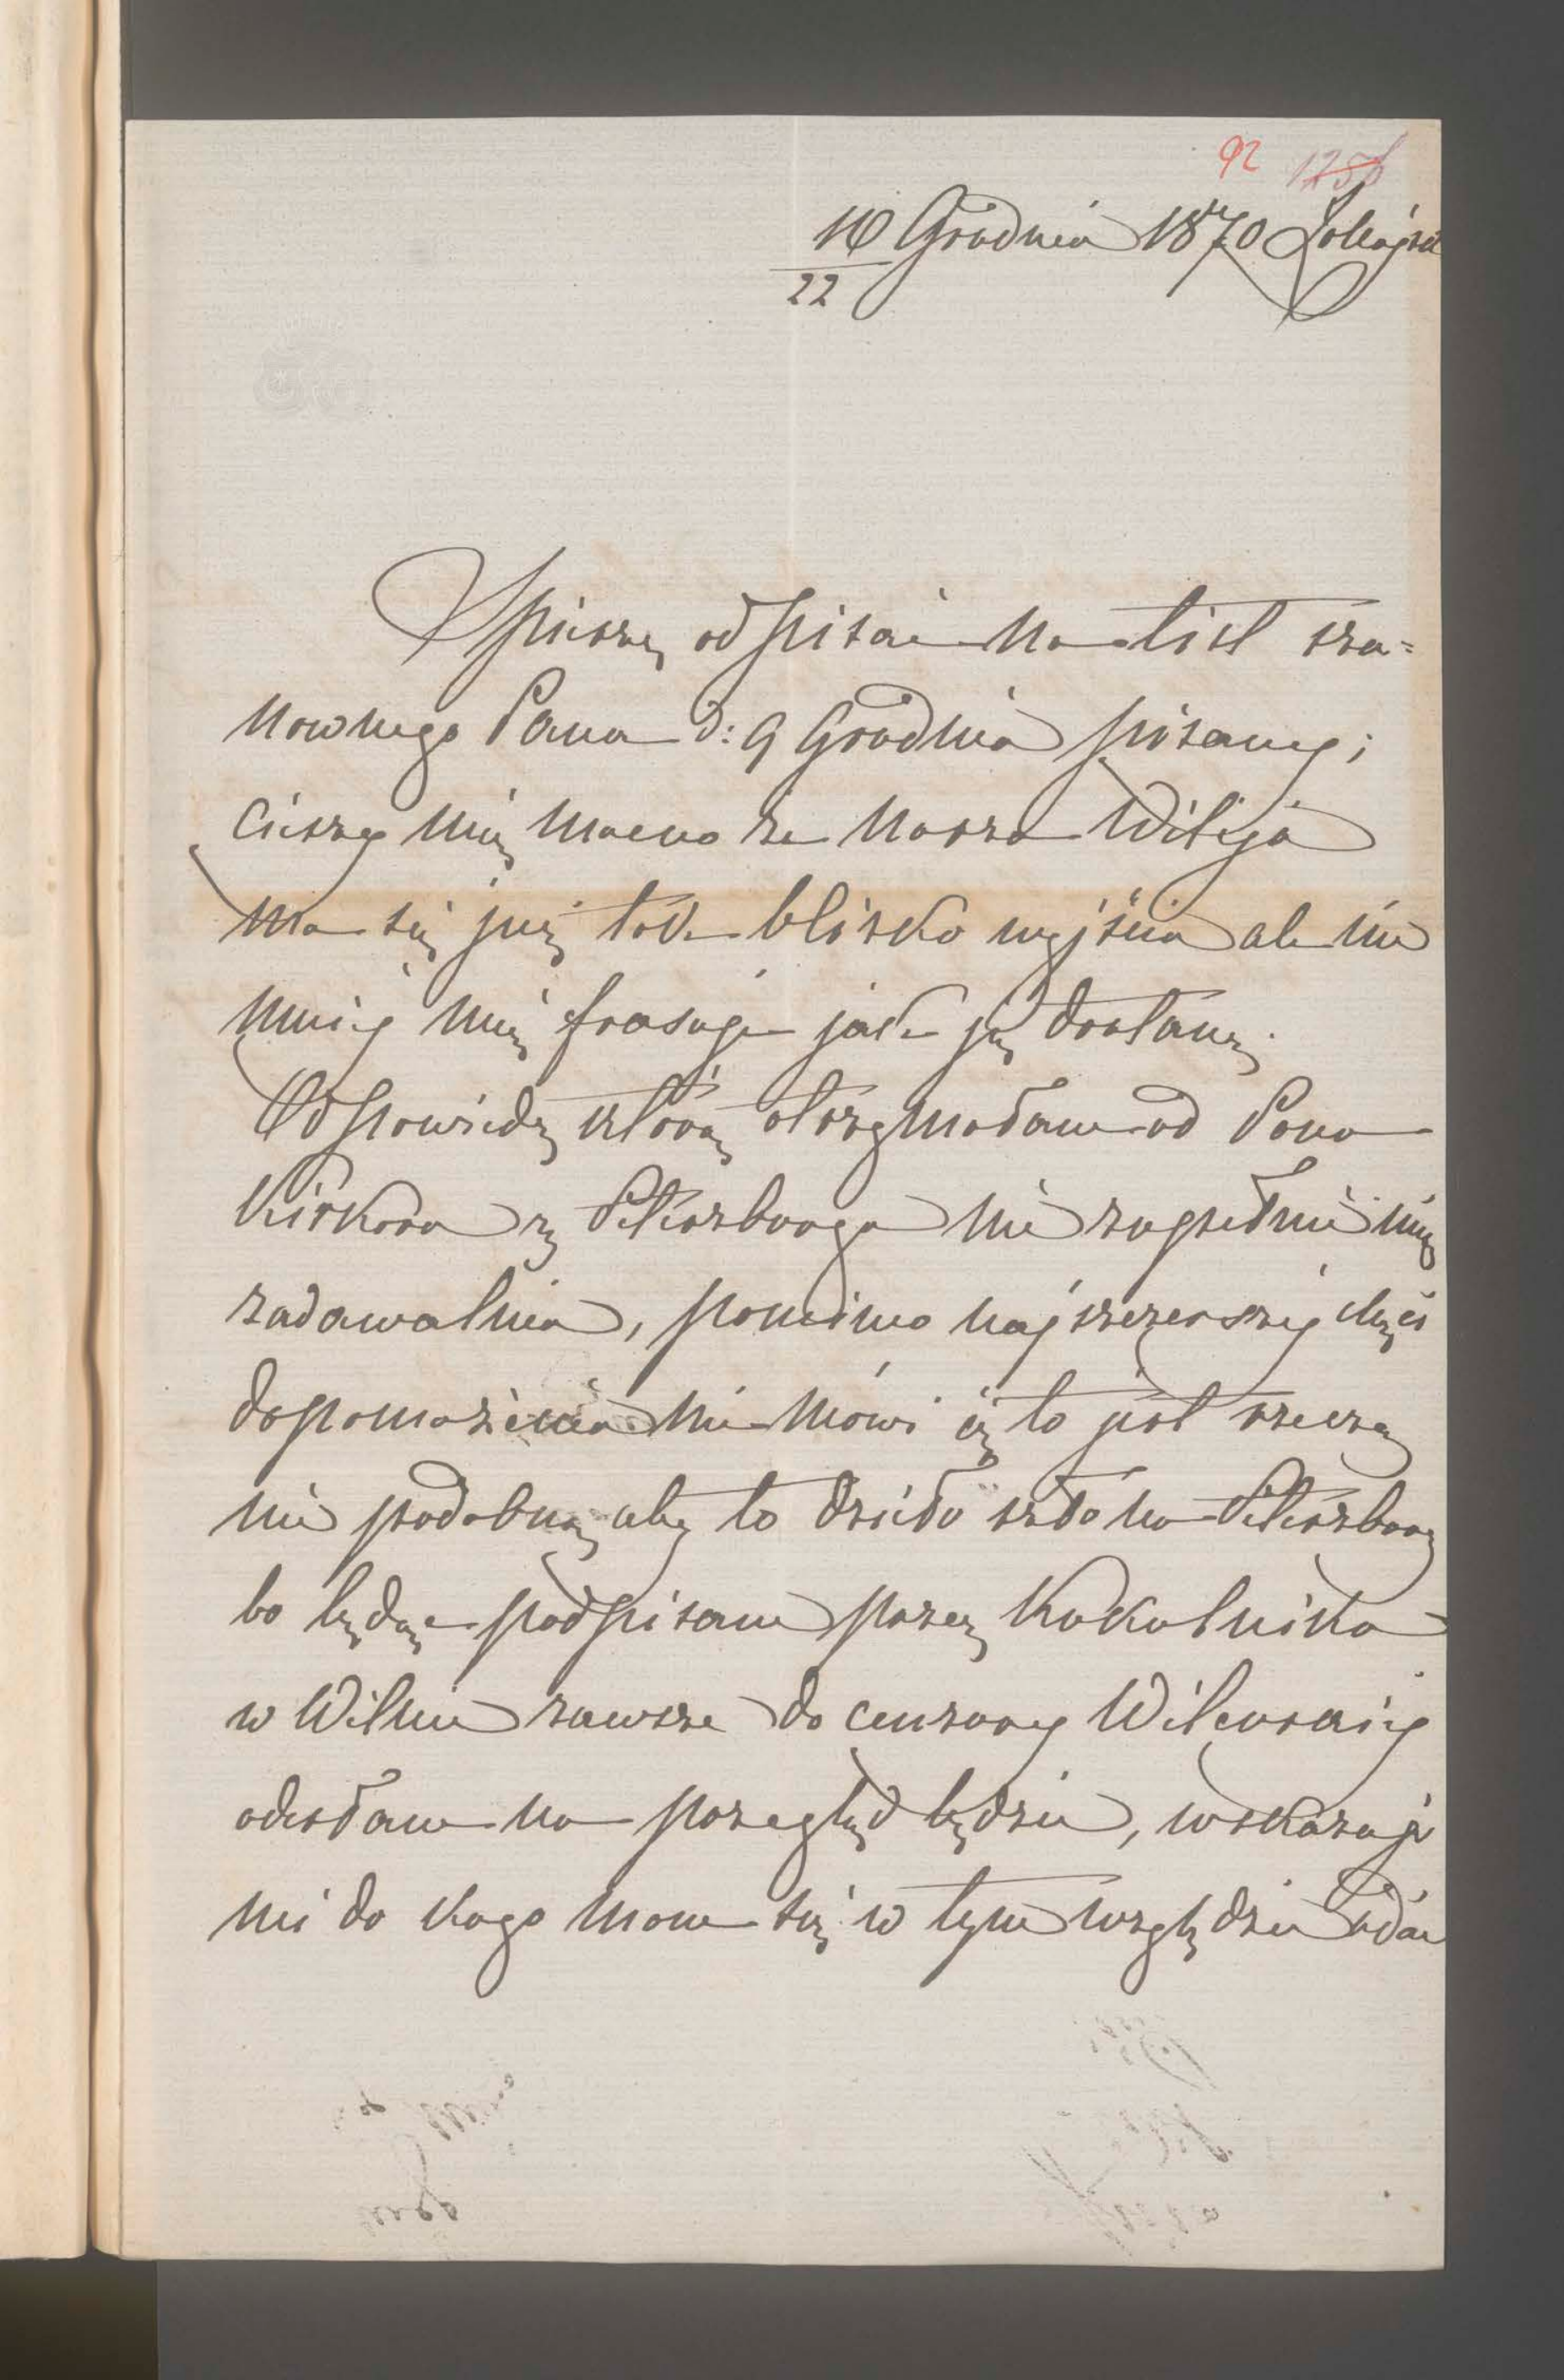 92
10/22 Grudnia 1870 r Łohojsk
Spieszę odpisać na list sza=
nownego Pana d: 9 Grudnia pisany;
cieszy mię mocno że nasza Wilija
ma się już tak blisko wyjścia ale nie
mniej mię frasuje jak ją dostanę.
Odpowiedź którą otrzymałam od Pana
Kirkora z Petersburga nie zupełnie mię
zadawalnia, pomimo najszczerszej chęci
dopomożenia mi mówi iż to jest rzeczą
nie podobną aby to dzieło szło na Petersburg
bo będąc podpisane przez Kukolnika
w Wilnie zawsze do cenzury Wileńskiej
odesłane na przegląd będzie, wskazuje
mi do kogo mam się w tym względzie udać